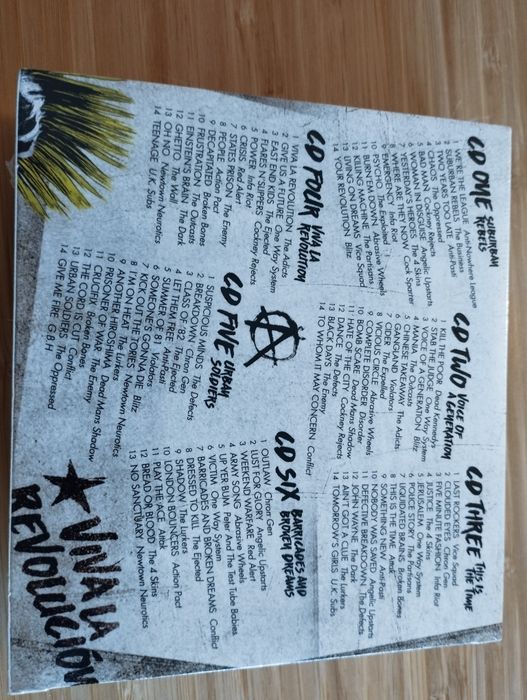 CD ONE SUBURBAN REBELS
1 WE'RE THE LEAGUE Anti-Nowhere League
2 SUBURBAN REBELS The Business
3 TWO YEARS TOO LATE Anti-Pasti
4 CHAOS The Oppressed
5 BAD MAN Cockney Rejects
6 WOMAN IN DISGUISE Angelic Upstarts
7 YESTERDAY'S HEROES The 4 Skins
8 WHERE ARE THEY NOW Cock Sparrer
9 EMERGENCY Infa Riot
10 PSYCHO The Exploited
11 BURN 'EM DOWN Abrasive Wheels
12 KILLING MACHINE The Partisans
13 LIVING ON DREAMS Vice Squad
14 YOUR REVOLUTION Blitz
CD TWO VOICE OF A GENERATION
1 KILL THE POOR Dead Kennedys
2 STAB THE JUDGE One Way System
3 VOICE OF A GENERATION Blitz
4 MANIA The Outcasts
5 CHINESE TAKEAWAY The Adicts
6 GANGLAND Violators
7 CIDER The Expelled
8 VICIOUS CIRCLE Abrasive Wheels
9 COMPLETE DISORDER Disorder
10 BOMB SCARE Dead Mans Shadow
11 HATE OF THE CITY Cockney Rejects
12 DANCE The Defects
13 BLACK DAYS The Enemy
14 TO WHOM IT MAY CONCERN Conflict
CD THREE THIS IS THE TIME
1 LAST ROCKERS Vice Squad
2 CLOUDED EYES Chron Gen
3 FIVE MINUTE FASHION Infa Riot
4 JUSTICE The 4 Skins
5 JERUSALEM One Way System
6 POLICE STORY The Partisans
7 LIQUIDATED BRAINS Broken Bones
8 THIS IS THE TIME Attak
9 SOMETHING NEW Anti-Pasti
10 NOBODY WAS SAVED Angelic Upstarts
11 DEFECTIVE BREAKDOWN The Defects
12 JOHN WAYNE The Dark
13 AIN'T GOT A CLUE The Lurkers
14 TOMORROW'S GIRLS U.K. Subs
CD FOUR VIVA LA REVOLUTION
1 VIVA LA REVOLUTION The Adicts
2 GIVE US A FUTURE One Way System
3 EAST END KIDS The Ejected
4 FLARES 'N SLIPPERS Cockney Rejects
5 POWER Infa Riot
6 CRISIS Red Alert
7 STATES PRISON The Enemy
8 PEOPLE Action Pact
9 DECAPITATED Broken Bones
10 FRUSTRATION The Outcasts
11 EINSTEIN'S BRAIN The Dark
12 GHETTO The Wall
13 OH NO Newtown Neurotics
14 TEENAGE U.K. Subs
CD FIVE URBAN SOLDIERS
1 SUSPICIOUS MINDS The Defects
2 BREAKDOWN Chron Gen
3 CLASS OF '82 The Ejected
4 LET THEM FREE Anti-Pasti
5 SUMMER OF '81 Violators
6 SOMEONE'S GONNA DIE Blitz
7 KICK OUT THE TORIES Newtown Neurotics
8 I'M ON HEAT The Lurkers
9 ANOTHER HIROSHIMA Dead Mans Shadow
10 PRISONER OF WAR The Enemy
11 CRUCIFIX Broken Bones
12 THE CORD IS CUT Conflict
13 URBAN SOLDIERS Oppressed
14 GIVE ME FIRE G.B.H
CD SIX BARRICADES AND BROKEN DREAMS
1 OUTLAW Chron Gen
2 LUST FOR GLORY Angelic Upstarts
3 WEEKEND WARFARE Red Alert
4 ARMY SONG Abrasive Wheels
5 UP YER BUM Peter And The Test Tube Babies
6 VICTIM One Way System
7 BARRICADES AND BROKEN DREAMS Conflict
8 DRESSED TO KILL The Ejected
9 SHADOW The Lurkers
10 LONDON BOUNCERS Action Pact
11 PLAY THE ACE Attak
12 BREAD OR BLOOD The 4 Skins
13 NO SANCTUARY Newtown Neurotics
VIVA LA REVOLUCIÓN